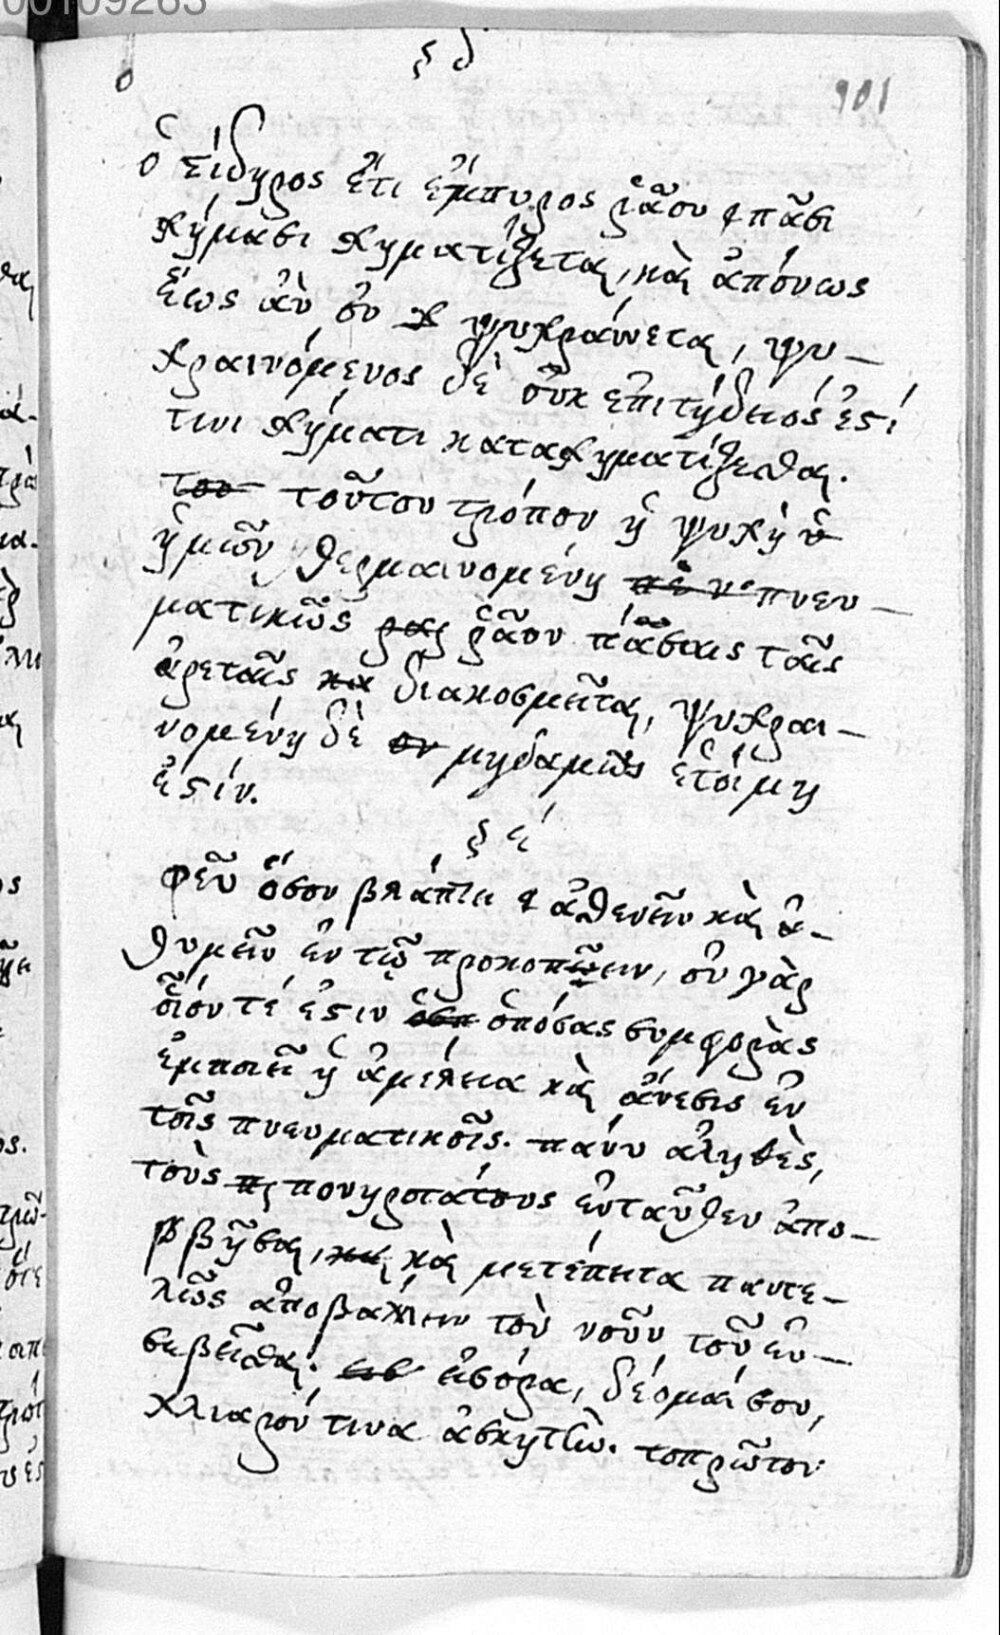 00109263
ξδ
901
ὁ σίδηρος ἔτι ἔμπυρος ῥᾷον πᾶσι
σχήμασι σχηματίζεται, καὶ ἀπόνως
ἕως ἂν οὐ ψυχραίνεται, ψυ-
χραινόμενος δὲ οὐκ ἐπιτήδειός ἐστί
τινι σχήματι κατασχηματίζεσθαι.
τοῦτον τρόπον ἡ ψυχὴ
ἡμῶν θερμαινομένη πνευ-
ματικῶς ῥᾷον πάσαις ταῖς
ἀρεταῖς διακοσμεῖται, ψυχραι-
νομένη δὲ μηδαμῶς ἑτοίμη
ἐστίν.
ξέ
φεῦ ὅσον βλάπτει ἀσθενεῖν καὶ ἀ-
θυμεῖν ἐν τῷ προκοπειν, οὐ γὰρ
οἷόν τέ ἐστιν ὁπόσας συμφορὰς
ἐμποιεῖ ἡ ἀμέλεια καὶ ἄνεσις ἐν
τοῖς πνευματικοῖς. πάνυ ἀληθὲς,
τοὺς πονηροτάτους ἐνταῦθεν ἀπο-
βῆσαι, καὶ μετέπειτα παντε-
λῶς ἀποβάλλειν τὸν νοῦν τοῦ εὐ-
σεβεῖσθαι. εἰσόρα, δέομαί σου,
χλιαρόν τινα ἀσκητὴν. τοπρῶτον